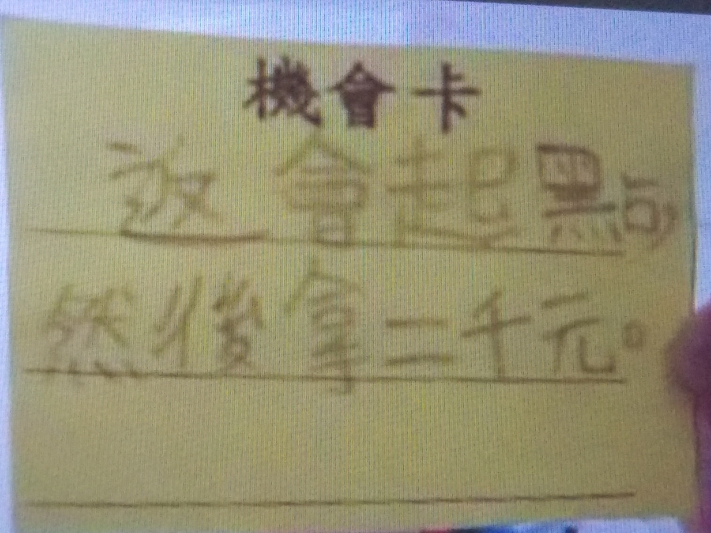 機會卡
返會起點,
然後拿二千元。